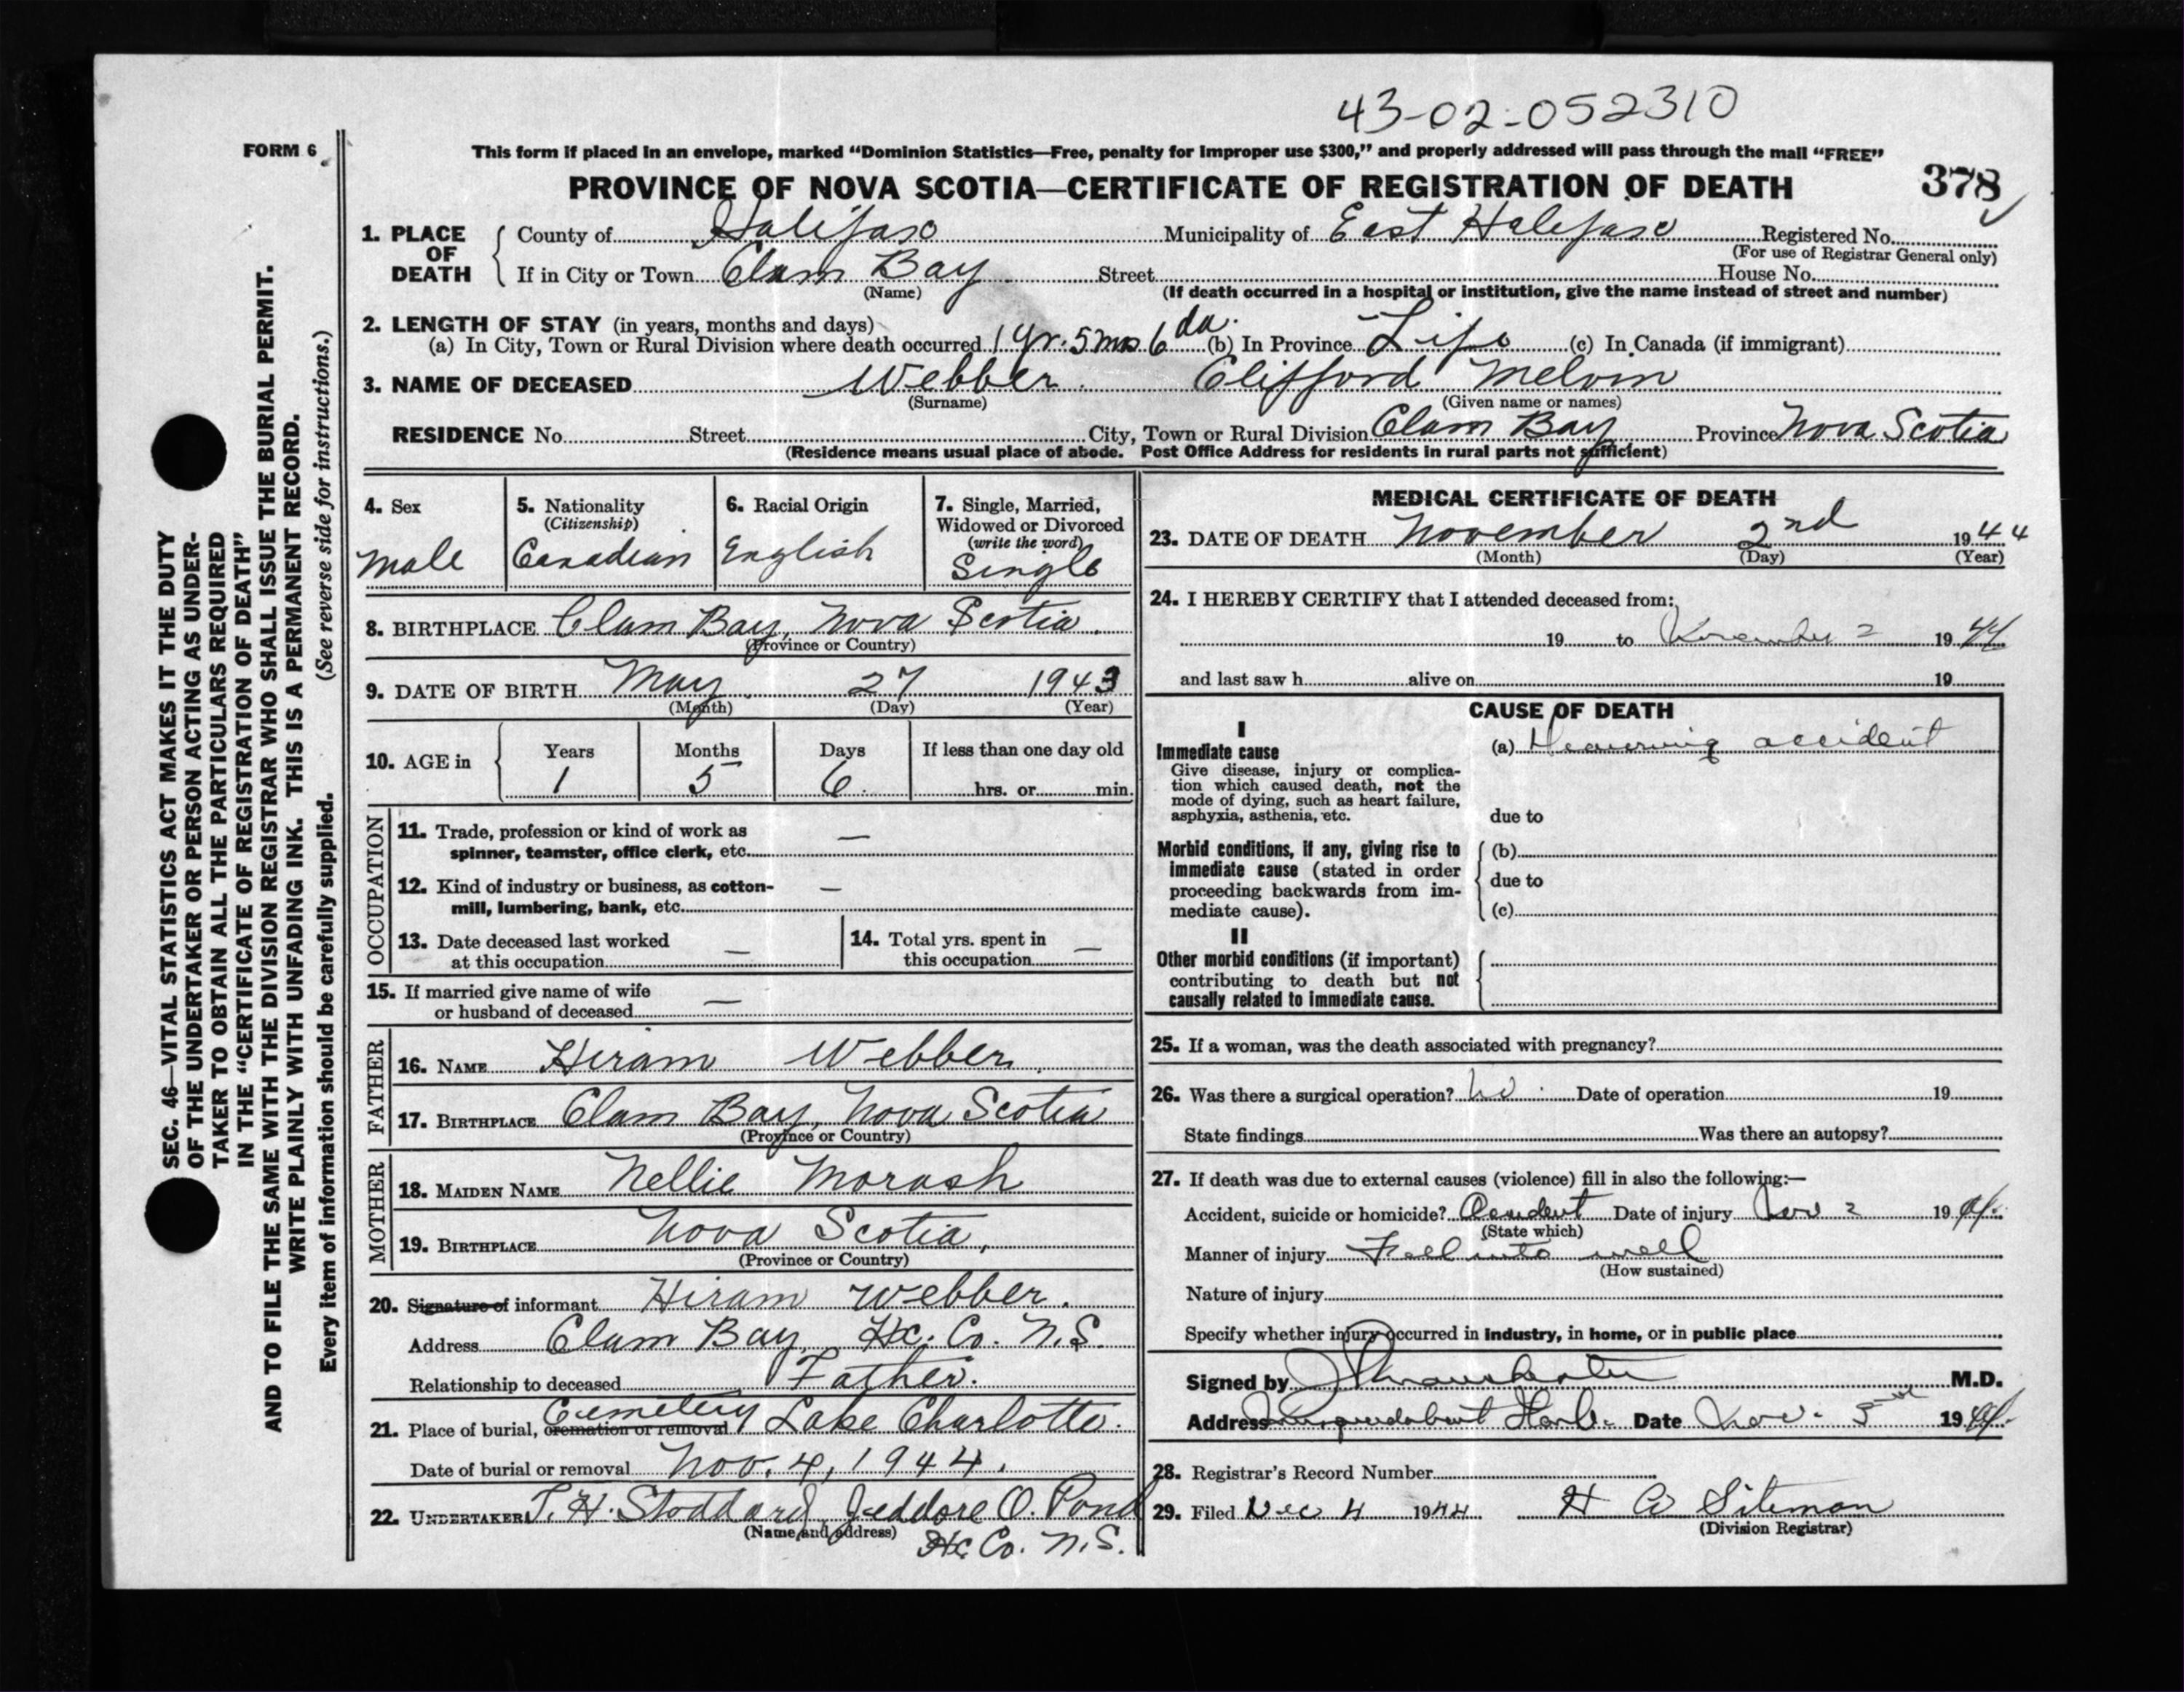 43-02-052310
FORM 6
This form if placed in an envelope, marked "Dominion Statistics—Free, penalty for improper use $300," and properly addressed will pass through the mail "FREE"
PROVINCE OF NOVA SCOTIA—CERTIFICATE OF REGISTRATION OF DEATH 378
1. PLACE OF DEATH County of Halifax Municipality of East Halifax Registered No.
(For use of Registrar General only)
If in City or Town Clam Bay Street House No.
(Name) (If death occurred in a hospital or institution, give the name instead of street and number)
2. LENGTH OF STAY (in years, months and days)
(a) In City, Town or Rural Division where death occurred 1 yr. 5 mos 6 da. (b) In Province Life (c) In Canada (if immigrant)
3. NAME OF DECEASED Webber Clifford Melvin
(Surname) (Given name or names)
RESIDENCE No. Street City, Town or Rural Division Clam Bay Province Nova Scotia
(Residence means usual place of abode. Post Office Address for residents in rural parts not sufficient)
4. Sex
Male
5. Nationality
(Citizenship)
Canadian
6. Racial Origin
English
7. Single, Married,
Widowed or Divorced
(write the word)
Single
8. BIRTHPLACE Clam Bay, Nova Scotia
(Province or Country)
9. DATE OF BIRTH May 27 1943
(Month) (Day) (Year)
10. AGE in Years Months Days If less than one day old
1 5 6 hrs. or min.
OCCUPATION
11. Trade, profession or kind of work as —
spinner, teamster, office clerk, etc.
12. Kind of industry or business, as cotton- —
mill, lumbering, bank, etc.
13. Date deceased last worked
at this occupation —
14. Total yrs. spent in
this occupation —
15. If married give name of wife
or husband of deceased —
FATHER
16. NAME Hiram Webber
17. BIRTHPLACE Clam Bay, Nova Scotia
(Province or Country)
MOTHER
18. MAIDEN NAME Nellie Morash
19. BIRTHPLACE Nova Scotia,
(Province or Country)
20. Signature of informant Hiram Webber.
Address Clam Bay, Hx. Co. N.S.
Relationship to deceased Father.
21. Place of burial, cremation or removal Cemetery Lake Charlotte.
Date of burial or removal Nov. 4, 1944.
22. UNDERTAKER T. H. Stoddard, Jeddore O. Pond
(Name and address) Hx Co. N.S.
MEDICAL CERTIFICATE OF DEATH
23. DATE OF DEATH November 2nd 1944
(Month) (Day) (Year)
24. I HEREBY CERTIFY that I attended deceased from:
19 to November 2 1944
and last saw h alive on 19
CAUSE OF DEATH
I
Immediate cause
Give disease, injury or complica-
tion which caused death, not the
mode of dying, such as heart failure,
asphyxia, asthenia, etc.
(a) accident
due to
Morbid conditions, if any, giving rise to
immediate cause (stated in order
proceeding backwards from im-
mediate cause).
(b)
due to
(c)
II
Other morbid conditions (if important)
contributing to death but not
causally related to immediate cause.
25. If a woman, was the death associated with pregnancy?
26. Was there a surgical operation? No Date of operation 19
State findings Was there an autopsy?
27. If death was due to external causes (violence) fill in also the following:—
Accident, suicide or homicide? Accident Date of injury Nov 2 1944
(State which)
Manner of injury Fell into well
(How sustained)
Nature of injury
Specify whether injury occurred in industry, in home, or in public place
Signed by M.D.
Address Date Nov. 1944
28. Registrar's Record Number
29. Filed Dec 4 1944 H A Siteman
(Division Registrar)
SEC. 46—VITAL STATISTICS ACT MAKES IT THE DUTY
OF THE UNDERTAKER OR PERSON ACTING AS UNDER-
TAKER TO OBTAIN ALL THE PARTICULARS REQUIRED
IN THE "CERTIFICATE OF REGISTRATION OF DEATH"
AND TO FILE THE SAME WITH THE DIVISION REGISTRAR WHO SHALL ISSUE THE BURIAL PERMIT.
WRITE PLAINLY WITH UNFADING INK. THIS IS A PERMANENT RECORD.
Every item of information should be carefully supplied. (See reverse side for instructions.)